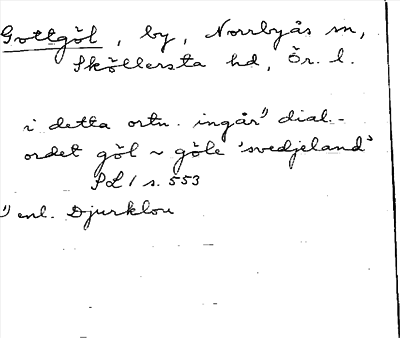 Gottgöl, by, Norrbyås sn,
Sköllersta hd, Ör. l.
i detta ortn. ingår¹⁾ dial.-
ordet göl ~ göle 'svedjeland'
SL 1 s. 553
¹⁾ enl. Djurklou